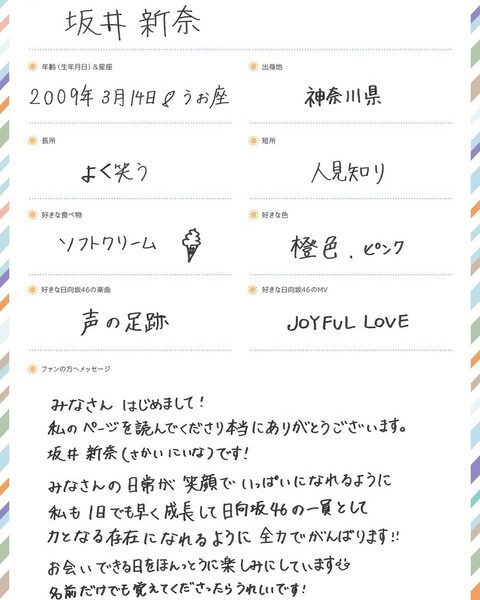 坂井 新奈
年齢(生年月日)&星座
2009年 3月14日 & うお座
出身地
神奈川県
長所
よく笑う
短所
人見知り
好きな食べ物
ソフトクリーム
好きな色
橙色、ピンク
好きな日向坂46の楽曲
声の足跡
好きな日向坂46のMV
JOYFUL LOVE
ファンの方へメッセージ
みなさん はじめまして!
私のページを読んでくださり本当にありがとうございます。
坂井 新奈(さかいにいな)です!
みなさんの日常が笑顔でいっぱいになれるように
私も1日でも早く成長して日向坂46の一員として
力となる存在になれるように全力でがんばります!!
お会いできる日をほんっとうに楽しみにしています
名前だけでも覚えてくださったらうれしいです!